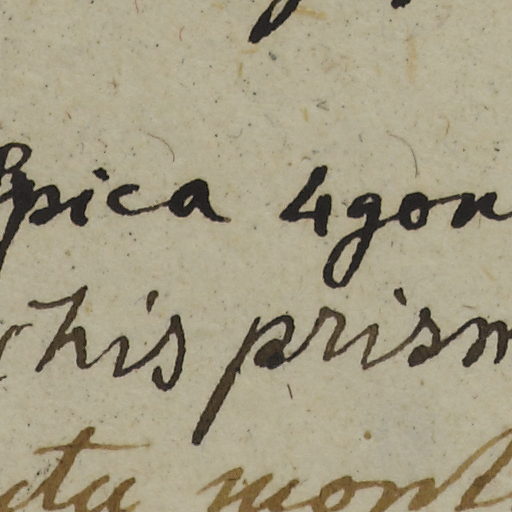 Spica 4gon
chis prism
uta mont